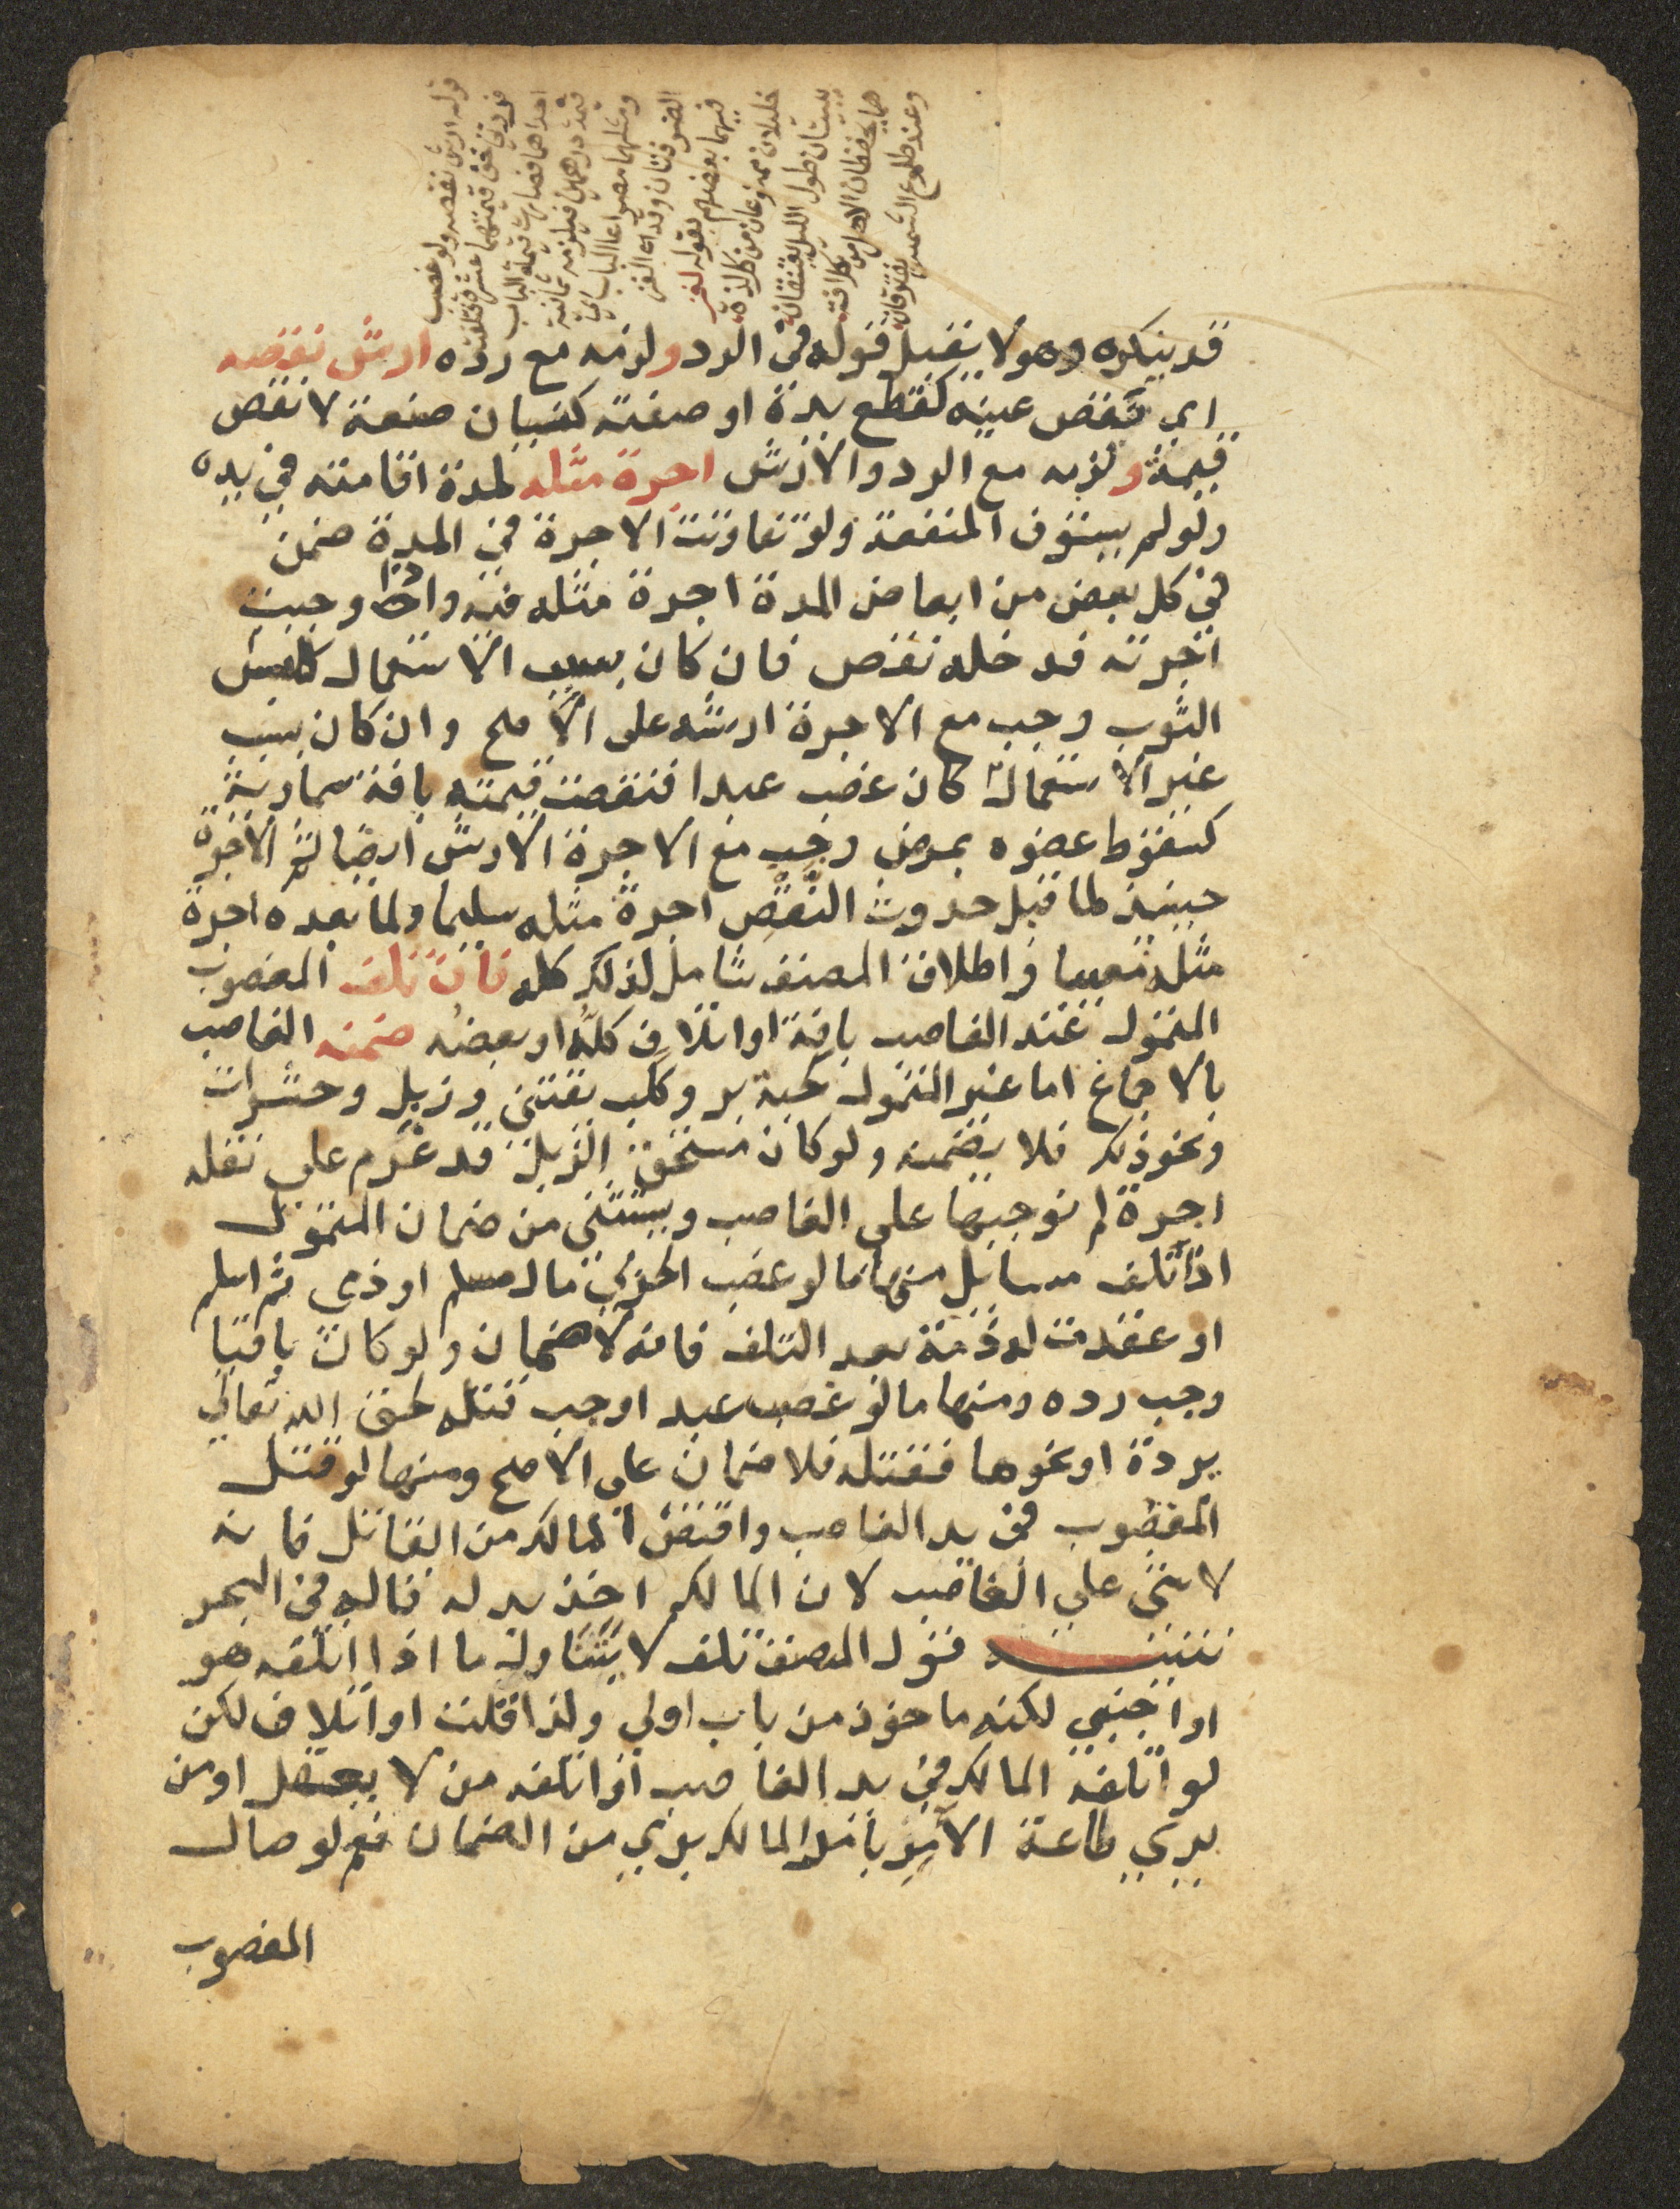 قوله ارش نقصه ولو غصب
فردتي خف قيمتهما عشرة فتلفت
احداهما فصارت قيمة الباب
قيمة درهمين فيلزمه ثمانية
ومثلهما مصراعا الباب اي
الضرفتان وقد الغز
فيهما بعضهم بقوله لغز
خليلان ممنوعان من كل لذة
يبيتان طول الليل يعتنقان
هما يحفظان الاهل من كل افة
وعند طلوع الشمس يفترقان
قد ينكره وهو لا يقبل قوله في الرد ولزمه مع رده ارش نقصه
اي نقص عينه كقطع يده او صفته كنسيان صنعة لا نقص
قيمته ولزمه مع الرد والارش اجرة مثله لمدة اقامته في يده
ولو لم يستوف المنفعة ولو تفاوتت الاجرة في المدة ضمن
في كل بعض من ابعاض المدة اجرة مثله فيه واذا وجبت
اجرته فدخله نقص فان كان بسبب الاستعمال كلبس
الثوب وجب مع الاجرة ارشه على الاصح وان كان بسبب
غير الاستعمال كان غصب عبدا فنقصت قيمته بافة سماوية
كسقوط عضوه بمرض وجب مع الاجرة الارش ايضا ثم الاجرة
حينيذ لما قبل حدوث النقص اجرة مثله سليما ولما بعده اجرة
مثله معيبا واطلاق المصنف شامل لذلك كله فان تلف المغصوب
المتمول عند الغاصب بافة او اتلاف كله او بعضه ضمنه الغاصب
بالاجماع اما غير المتمول كحبة بر وكلب يقتنى وزبل وحشرات
ونحو ذلك فلا يضمنه ولو كان مستحق الزبل قد غرم على نقله
اجرة لم نوجبها على الغاصب ويستثنى من ضمان المتمول
اذا تلف مسايل منها ما لو غصب الحربي مال مسلم او ذمي ثم اسلم
او عقدت له ذمة بعد التلف فانه لا ضمان ولو كان باقيا
وجب رده ومنها ما لو غصب عبدا وجب قتله لحق الله تعالى
بردة او نحوها فقتله فلا ضمان على الاصح ومنها لو قتل
المغصوب في يد الغاصب واقتص المالك من القاتل فانه
لا شي على الغاصب لان المالك اخذ بدله قاله في البحر
تنبيه قول المصنف تلف لا يتناول ما اذا اتلفه هو
او اجنبي لكنه ماخوذ من باب اولى ولذا قلت او اتلاف لكن
لو اتلفه المالك في يد الغاصب او اتلفه من لا يعقل او من
يرى طاعة الامر بامر المالك بري من الضمان نعم لو صال
المغصوب